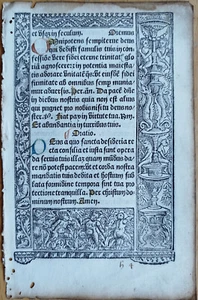 et vſq; in ſeculum. Oremus
Omnipotens ſempiterne deus
qui dediſti famulis tuis in con
feſſione vere fidei eterne trinitat⁊ glo
riā agnoſcere: ⁊ in potentia maieſta
tis adorare vnitatē: q̄s vt eiuſdē fidei
firmitate ab omnibus ſemp muniamur
aduerſis. Per. An. Da pacē dn̄e
in diebus noſtris quia non eſt alius
qui pugnet pro nobis niſi tu deus no
ſter. Fiat pax in virtute tua. Re.
Et abundantia in turribus tuis.
Oratio.
Deus a quo ſancta deſideria re
cta conſilia et iuſta ſunt opera
da ſeruis tuis illā quam mūdus da
re nō poteſt pacem: vt et corda noſtra
mandatis tuis dedita et hoſtium ſub
lata formidine tempora ſint tua pro
tectione tranquilla. Per chriſtum
dominum noſtrum. Amen.